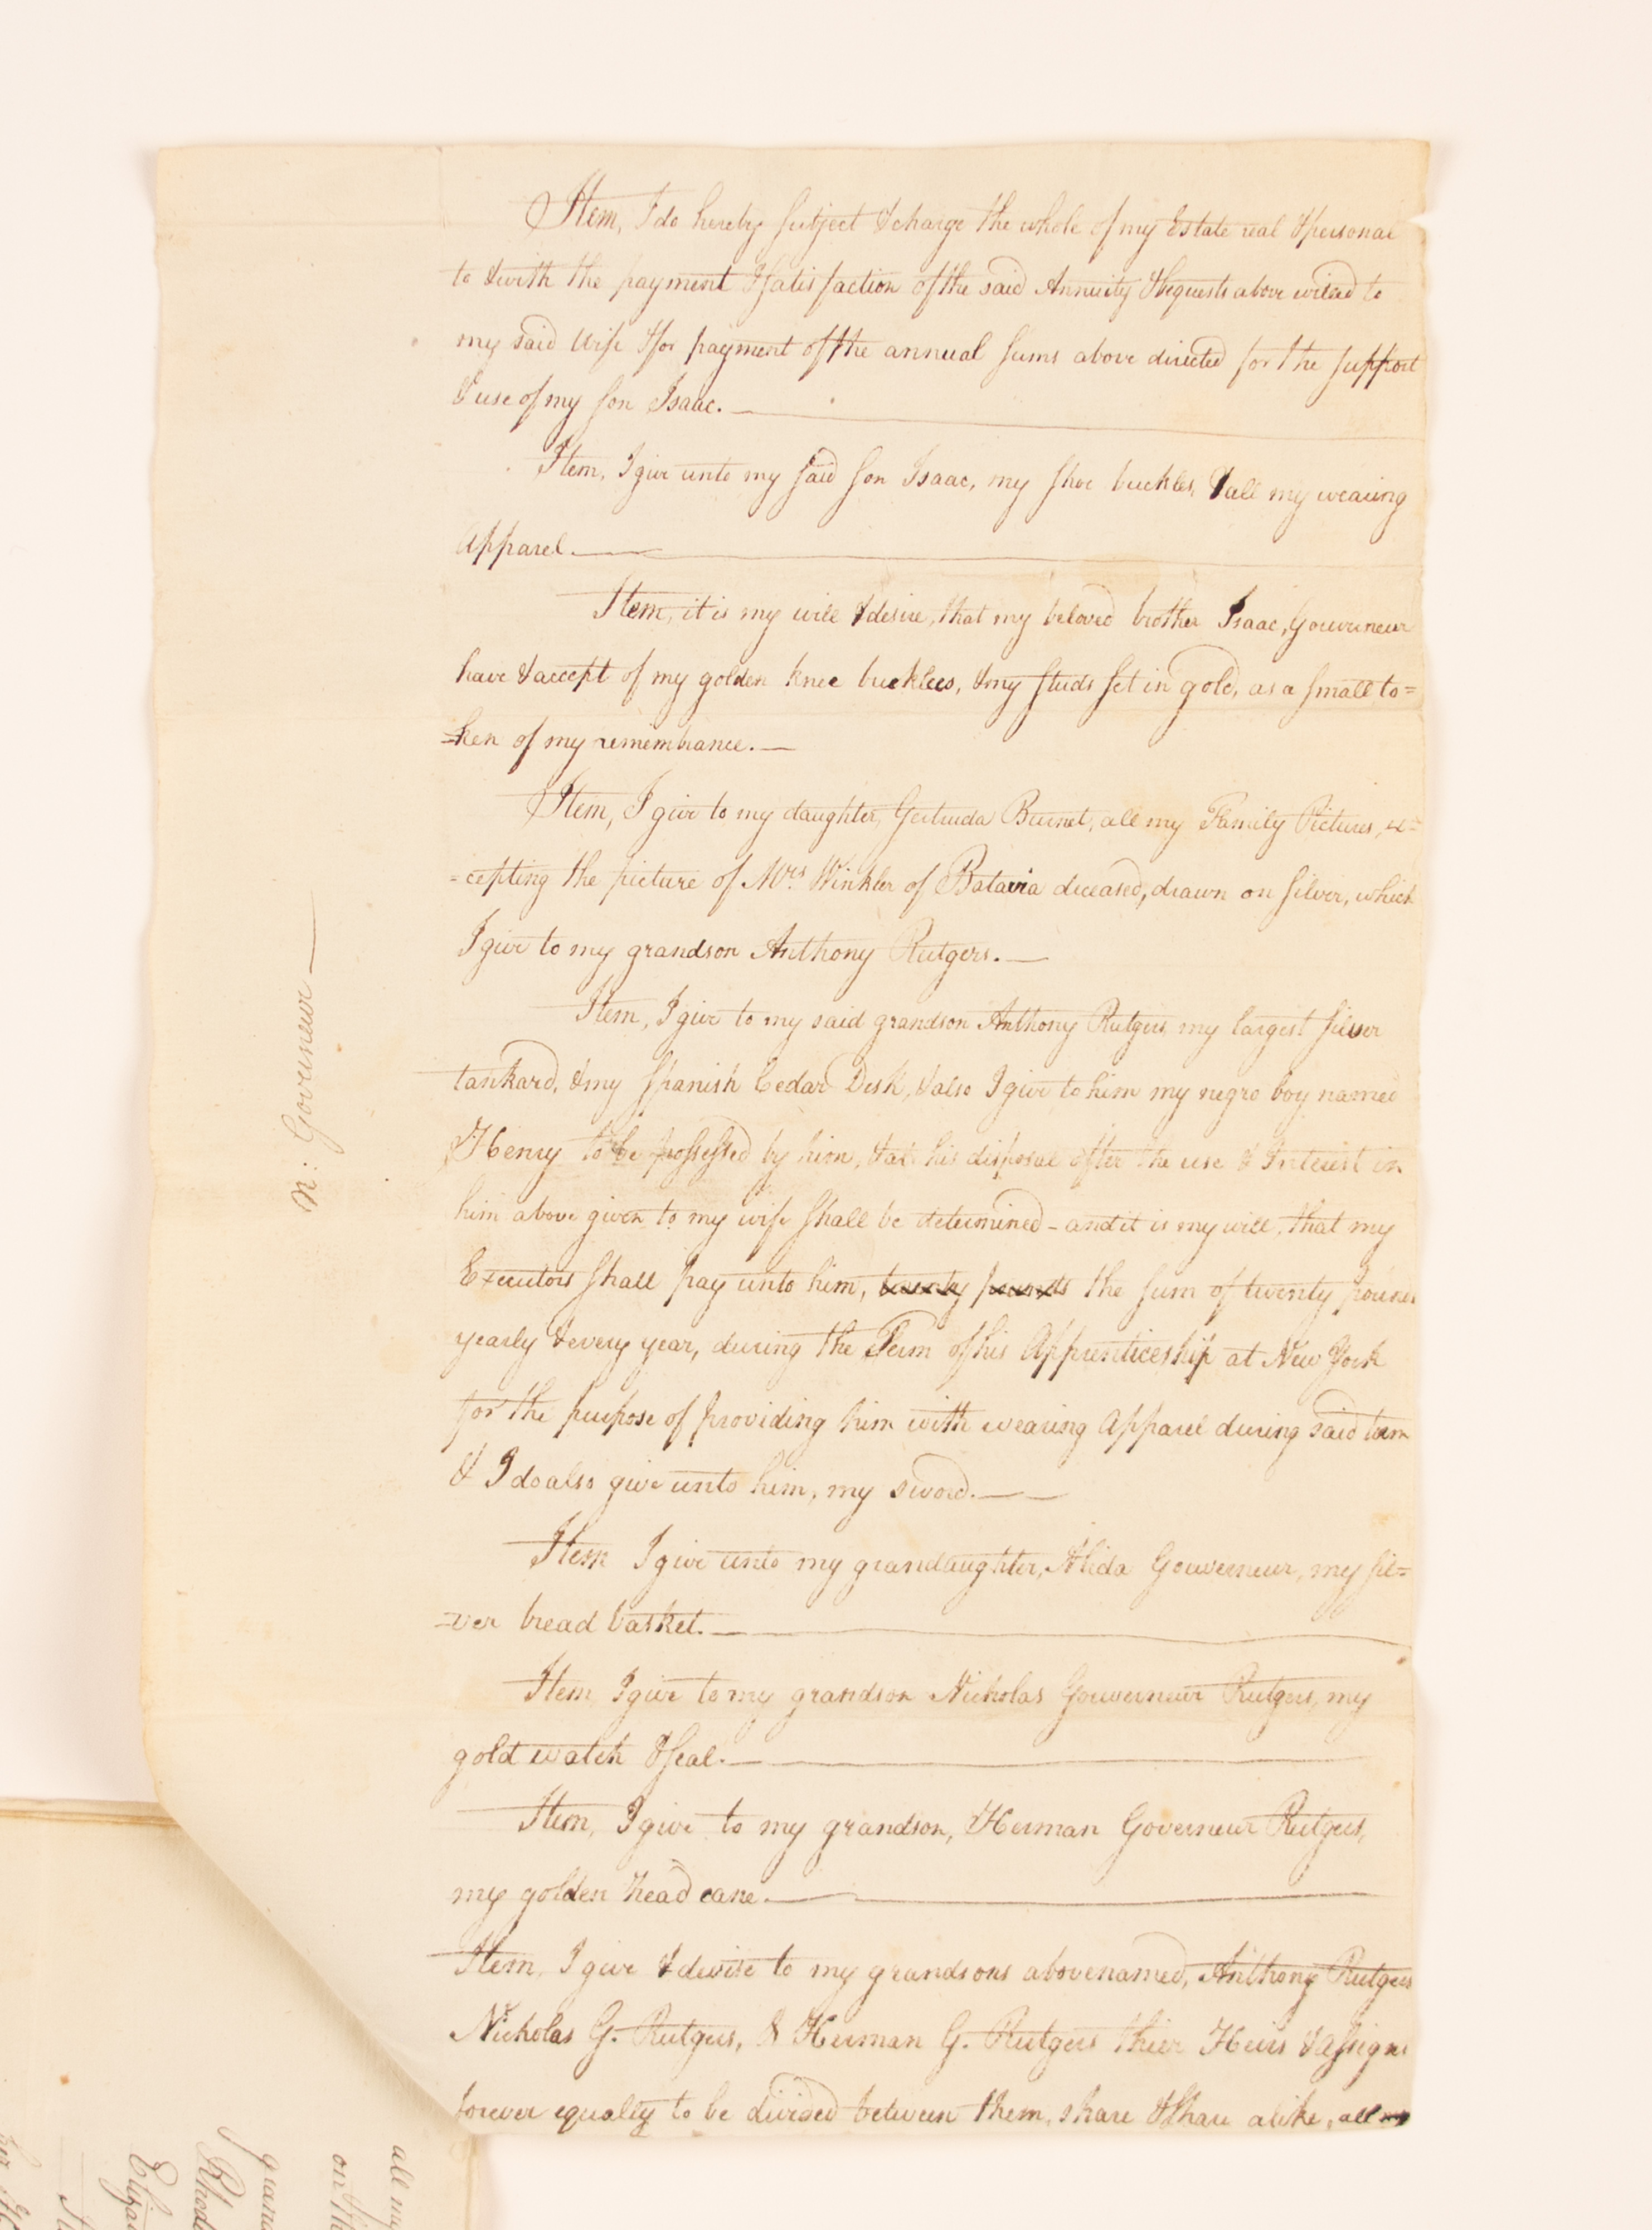 Item, I do hereby subject & charge the whole of my Estate real & personal
to & with the payment & satisfaction of the said Annuity & bequests above willed to
my said Wife & for payment of the annual sums above directed for the support
& use of my son Isaac.
Item, I give unto my said son Isaac, my shoe buckles, & all my wearing
Apparel.
Item, it is my will & desire, that my beloved brother Isaac, Gouverneur
have & accept of my golden knee buckles, & my studs set in gold, as a small to=
=ken of my remembrance.
Item, I give to my daughter, Gertruda Burnet, all my Family Pictures, ex=
=cepting the picture of Mrs. Winkler of Batavia deceased, drawn on silver, which
I give to my grandson Anthony Rutgers.
Item, I give to my said grandson Anthony Rutgers, my largest silver
tankard, & my Spanish Cedar Desk, & also I give to him my negro boy named
Henry to be possessed by him, & at his disposal after the use & Interest in
him above given to my wife shall be determined - and it is my will, that my
Executors shall pay unto him, twenty pounds the sum of twenty pounds
yearly & every year, during the Term of his Apprenticeship at New York
for the purpose of providing him with wearing Apparel during said term
& I do also give unto him, my sword.
Item I give unto my grandaughter, Alida Gouverneur, my sil=
=ver bread basket.
Item I give to my grandson Nicholas Gouverneur Rutgers, my
gold watch & seal.
Item, I give to my grandson, Herman Governeur Rutgers,
my golden head cane.
Item, I give & devise to my grandsons abovenamed, Anthony Rutgers
Nicholas G. Rutgers, & Herman G. Rutgers thier Heirs & Assigns
forever equally to be divided between them, share & share alike, all my
N: Governeur
all my
on th
grand
Rhod
Eliza